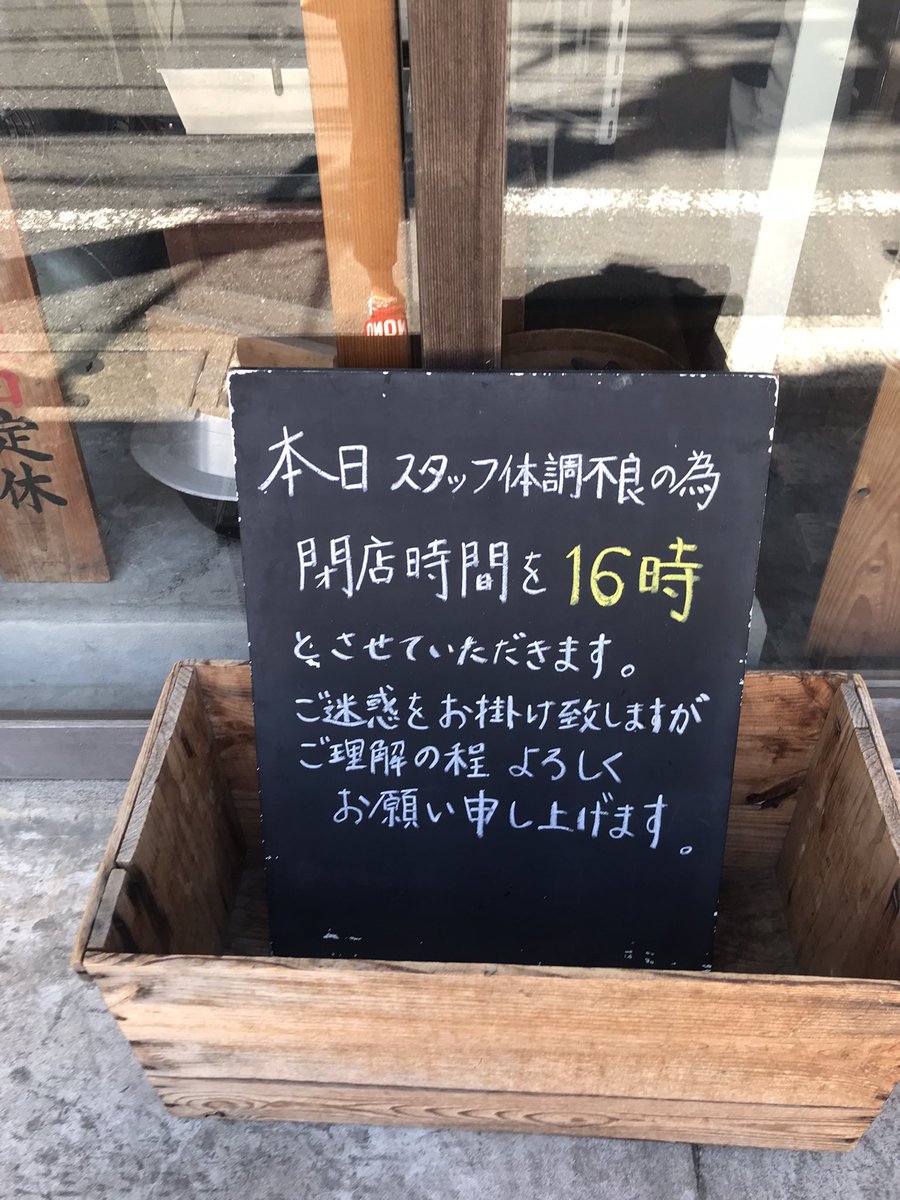 本日 スタッフ体調不良の為
閉店時間を 16時
とさせていただきます。
ご迷惑をお掛け致しますが
ご理解の程 よろしく
お願い申し上げます。
日
定
休